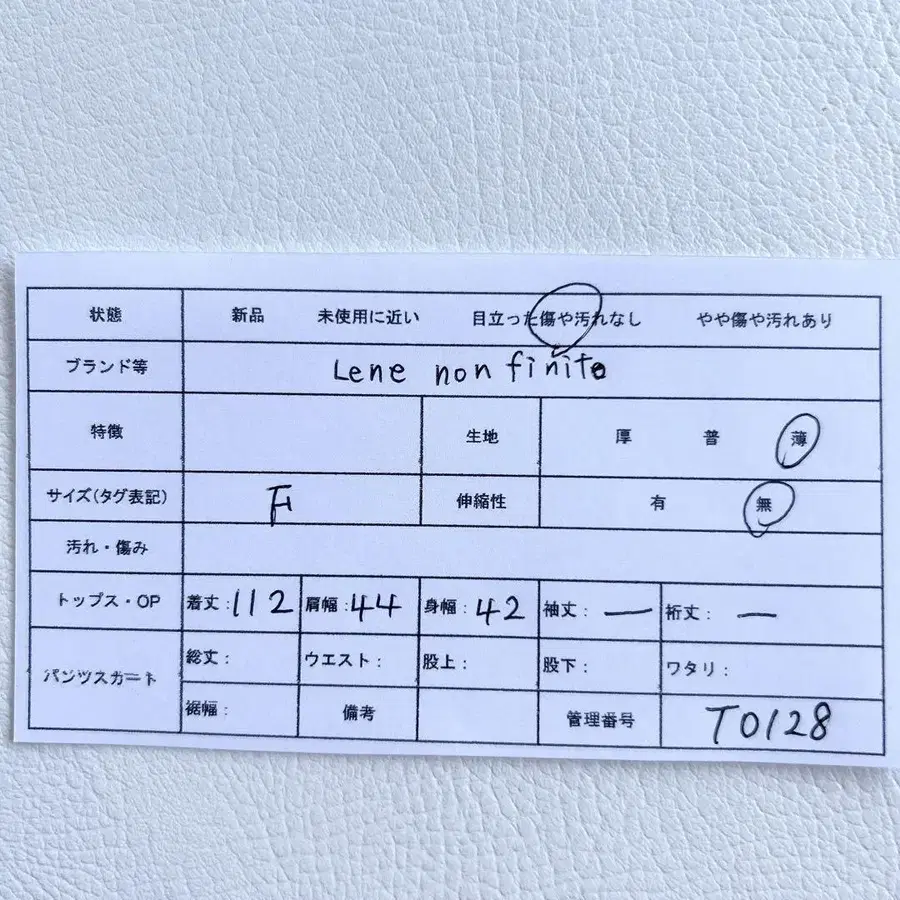 状態 新品 未使用に近い 目立った傷や汚れなし やや傷や汚れあり
ブランド等 Lene non finite
特徴 生地 厚 普 薄
サイズ(タグ表記) F 伸縮性 有 無
汚れ・傷み
トップス・OP 着丈:112 肩幅:44 身幅:42 袖丈:ー 裄丈:ー
パンツスカート 総丈: ウエスト: 股上: 股下: ワタリ:
裾幅: 備考 管理番号 T0128